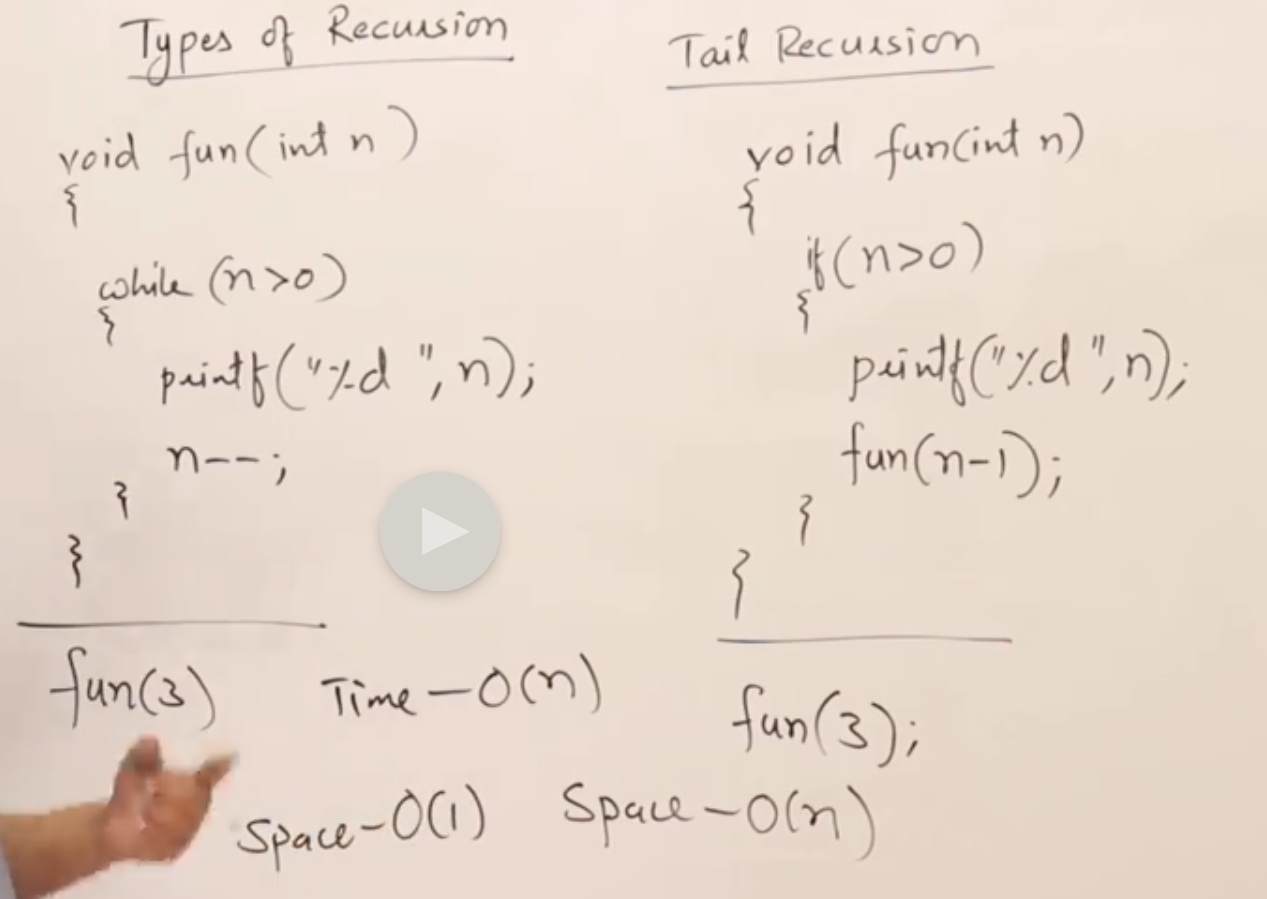 Types of Recursion
void fun(int n)
{
while (n>0)
{
printf("%d ", n);
n--;
}
}
fun(3)
Time - O(n)
Space - O(1)
Tail Recursion
void fun(int n)
{
if(n>0)
{
printf("%d ", n);
fun(n-1);
}
}
fun(3);
Space - O(n)